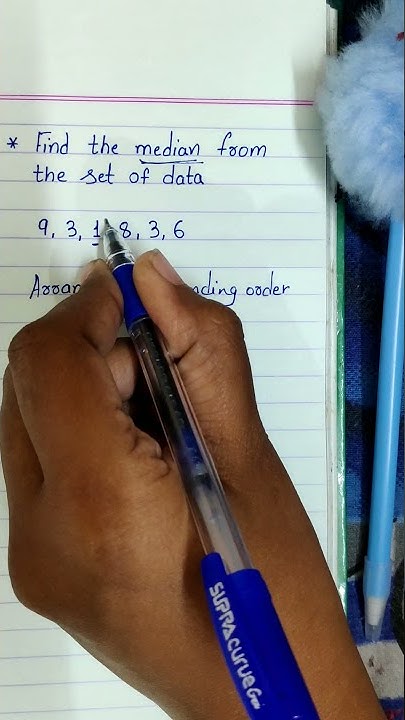 * Find the median from
the set of data
9, 3, 1, 8, 3, 6
order
SUPRA Curve